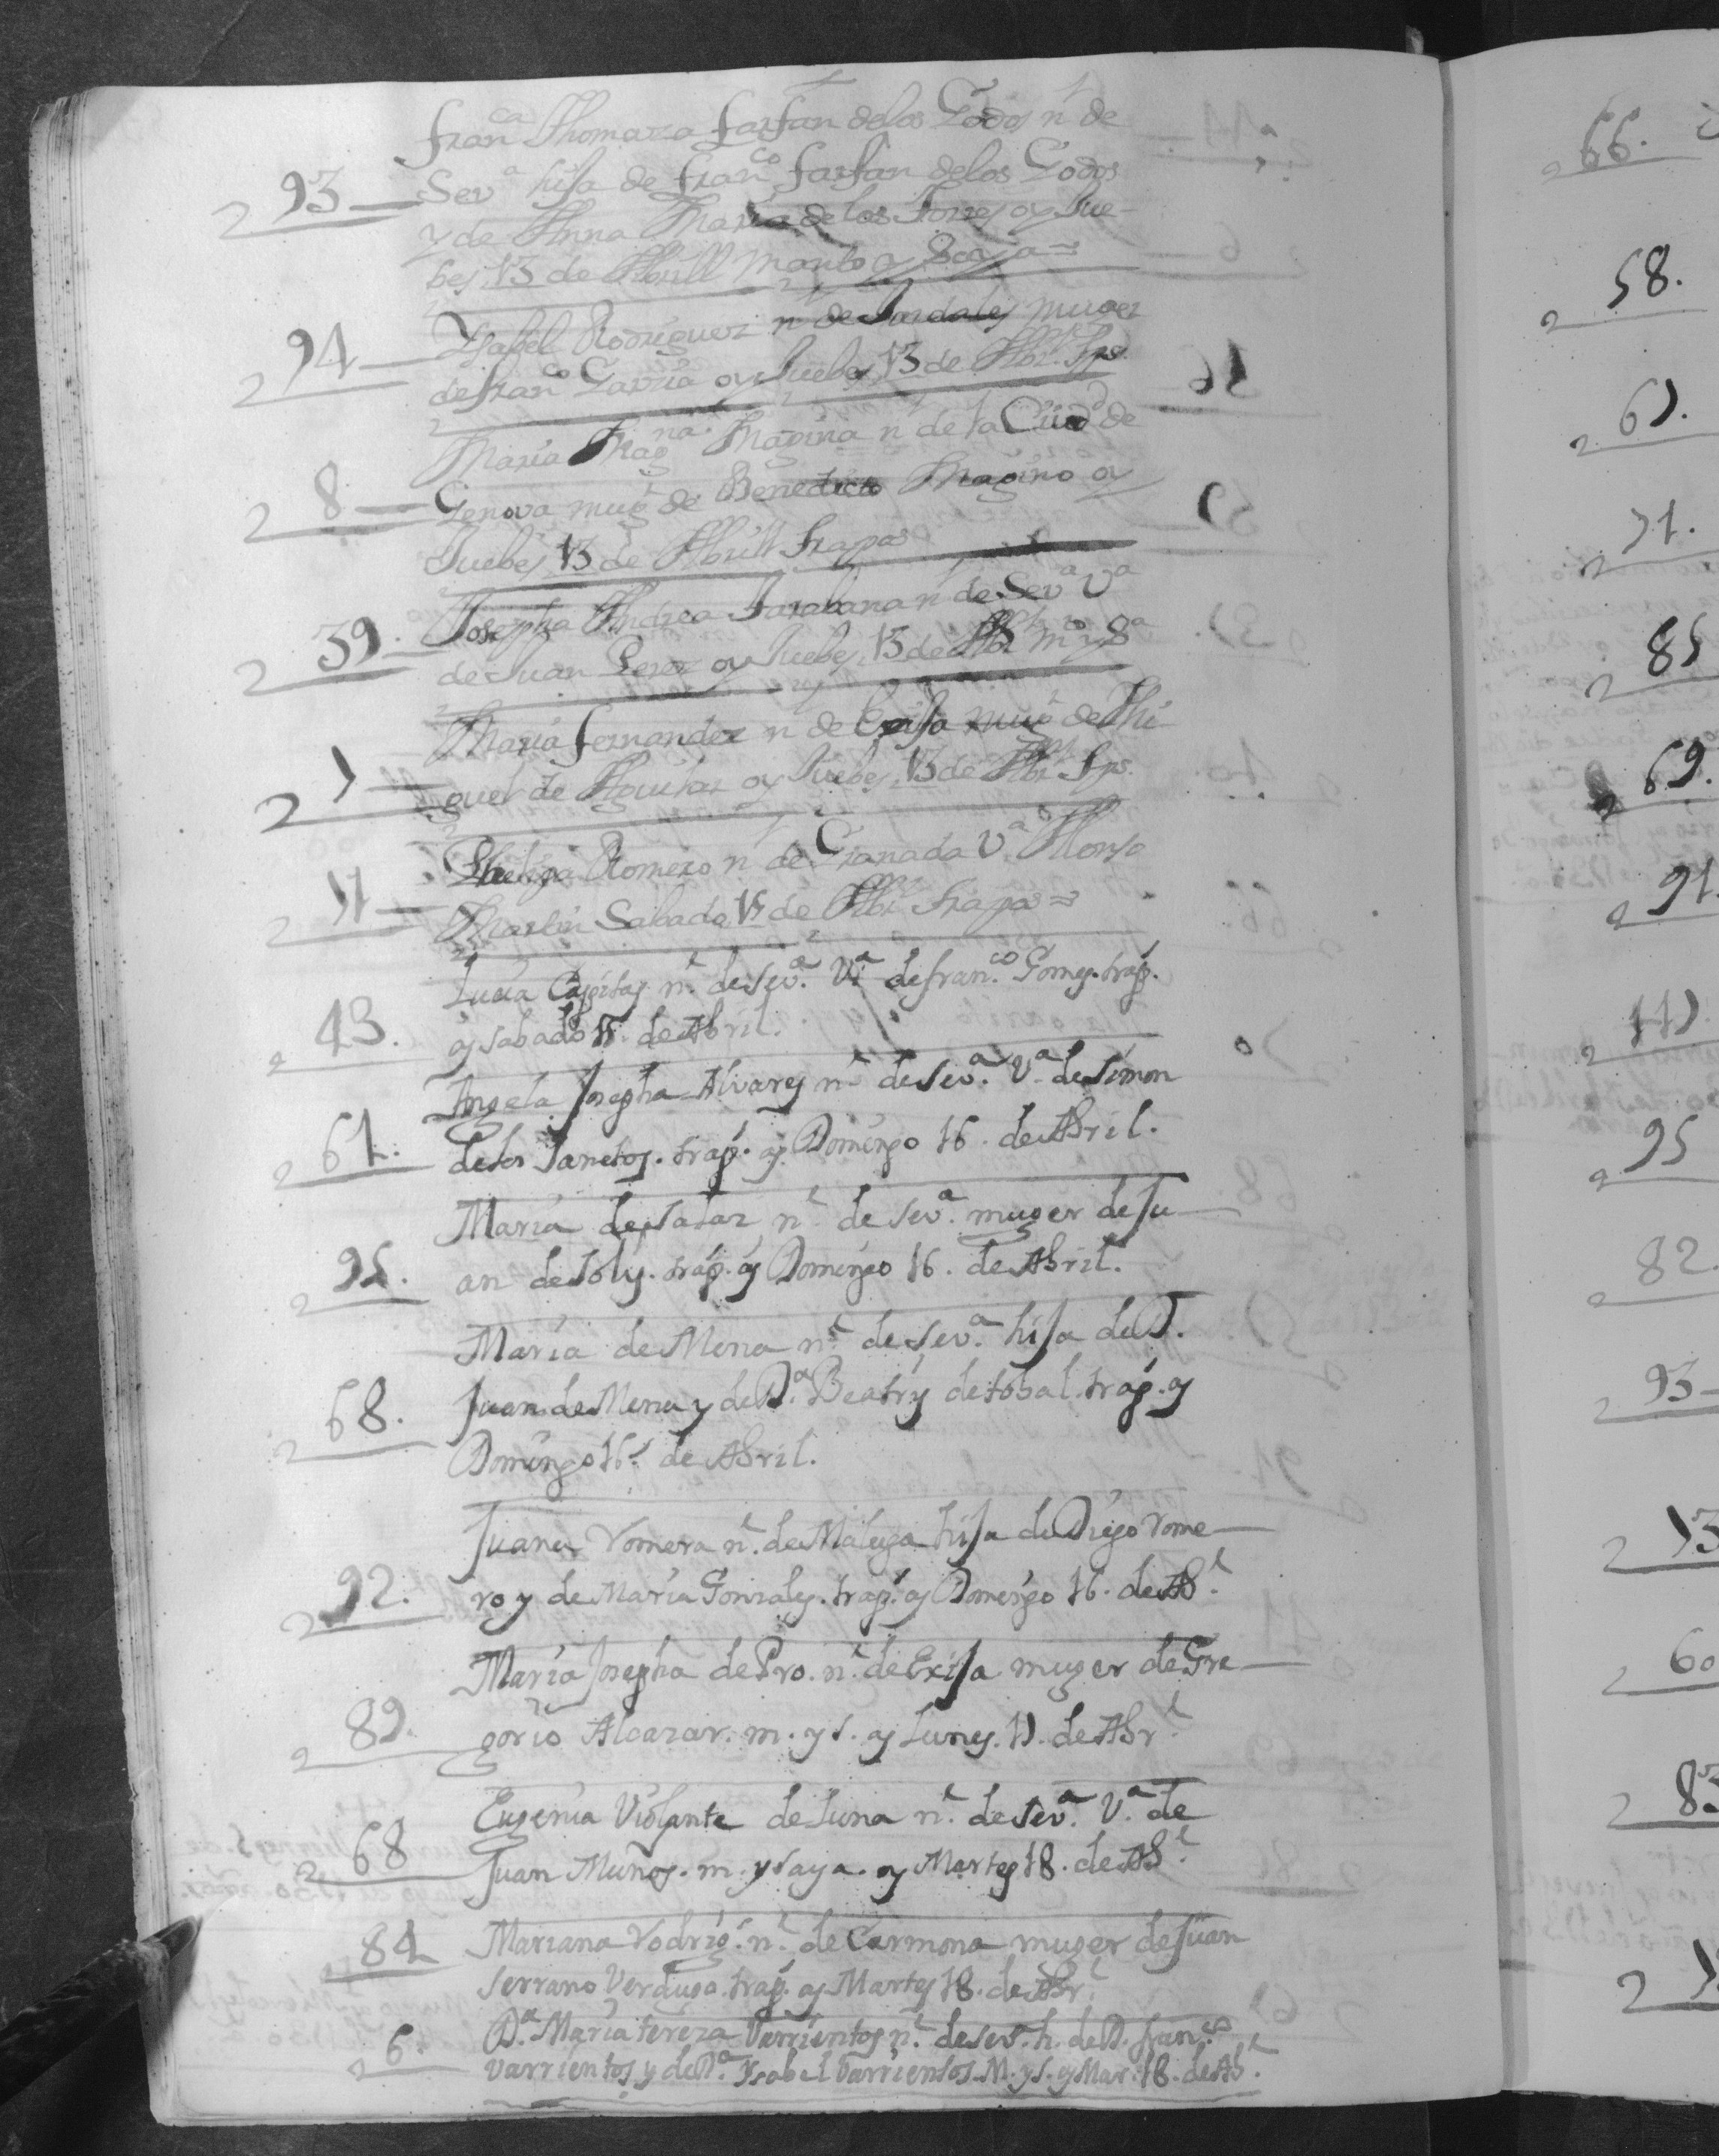 Franca Thomaza farfan de los Godos nl de
2 93 Seva hija de franco farfan de los Godos
y de Anna Maria de los Torres oy Jue-
bes 13 de Abrill Manto y Saya=
Ysabel Rodriguez n de muger
2 94 de franco Garzia oy Juebes 13 de Abrl. Tps.
Maria Magna. Magina n de la Ciudd de
2 8 Genova mugr de Benedicto Magino oy
Juebes 13 de Abrill trapos
Josepha Andrea Sarabana n de Seva Va
2 39. de Juan Perez oy Juebes 13 de Abrl Mo y Sa
Maria fernandez n de Exija mugr de Mi-
2 guel de Aguilar oy Juebes 13 de Abrl Tps.
Phelipa Romero nl de Granada Va Alonso
2 Martin Sabado 15 de Abrl trapos=
Lucia nl. de Seva. Va de franco. Gomes. trap.
2 43. oy sabado 15. de Abril.
Angela Josepha Alvares nl de Seva. Va de Simon
2 61. de los Sanctos. trap. oy Domingo 16. de Abril.
Maria de Salaz nl. de Seva. muger de Ju-
2 95. an de Solis. trap. oy Domingo 16. de Abril.
Maria de Mena nl. de Seva. hija de D.
2 68. Juan de Mena y de Da. Beatris de tobal. trap. oy
Domingo 16. de Abril.
Juana Romera nl. de Malaga hija de Diego Rome-
2 92. ro y de Maria Gonzales. trap. oy Domingo 16. de Abl.
Maria Josepha de Pro. nl. de Exija muger de Gre-
2 89. gorio Alcazar. m. y s. oy Lunes. 17. de Abrl.
Eugenia Violante de Luna nl. de Seva. Va. de
2 68 Juan Muños. m. y saya. oy Martes 18. de Abl.
84 Mariana Rodrig. nl. de Carmona muger de Juan
Serrano Verdugo. trap. oy Martes 18. de Abrl.
Da. Maria tereza Varrientos nl. de Sev. h. de D. franco
2 6. Varrientos y de Da. Ysabel Varrientos. M. y s. oy Mar. 18. de Abl.
2 66.
2 58.
2 67.
2 71.
2 85
2 69.
2 91.
2
2 95
2 82.
2 93
2 73
2 60
2 83
2